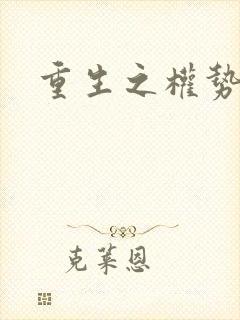 重生之權勢
克萊恩